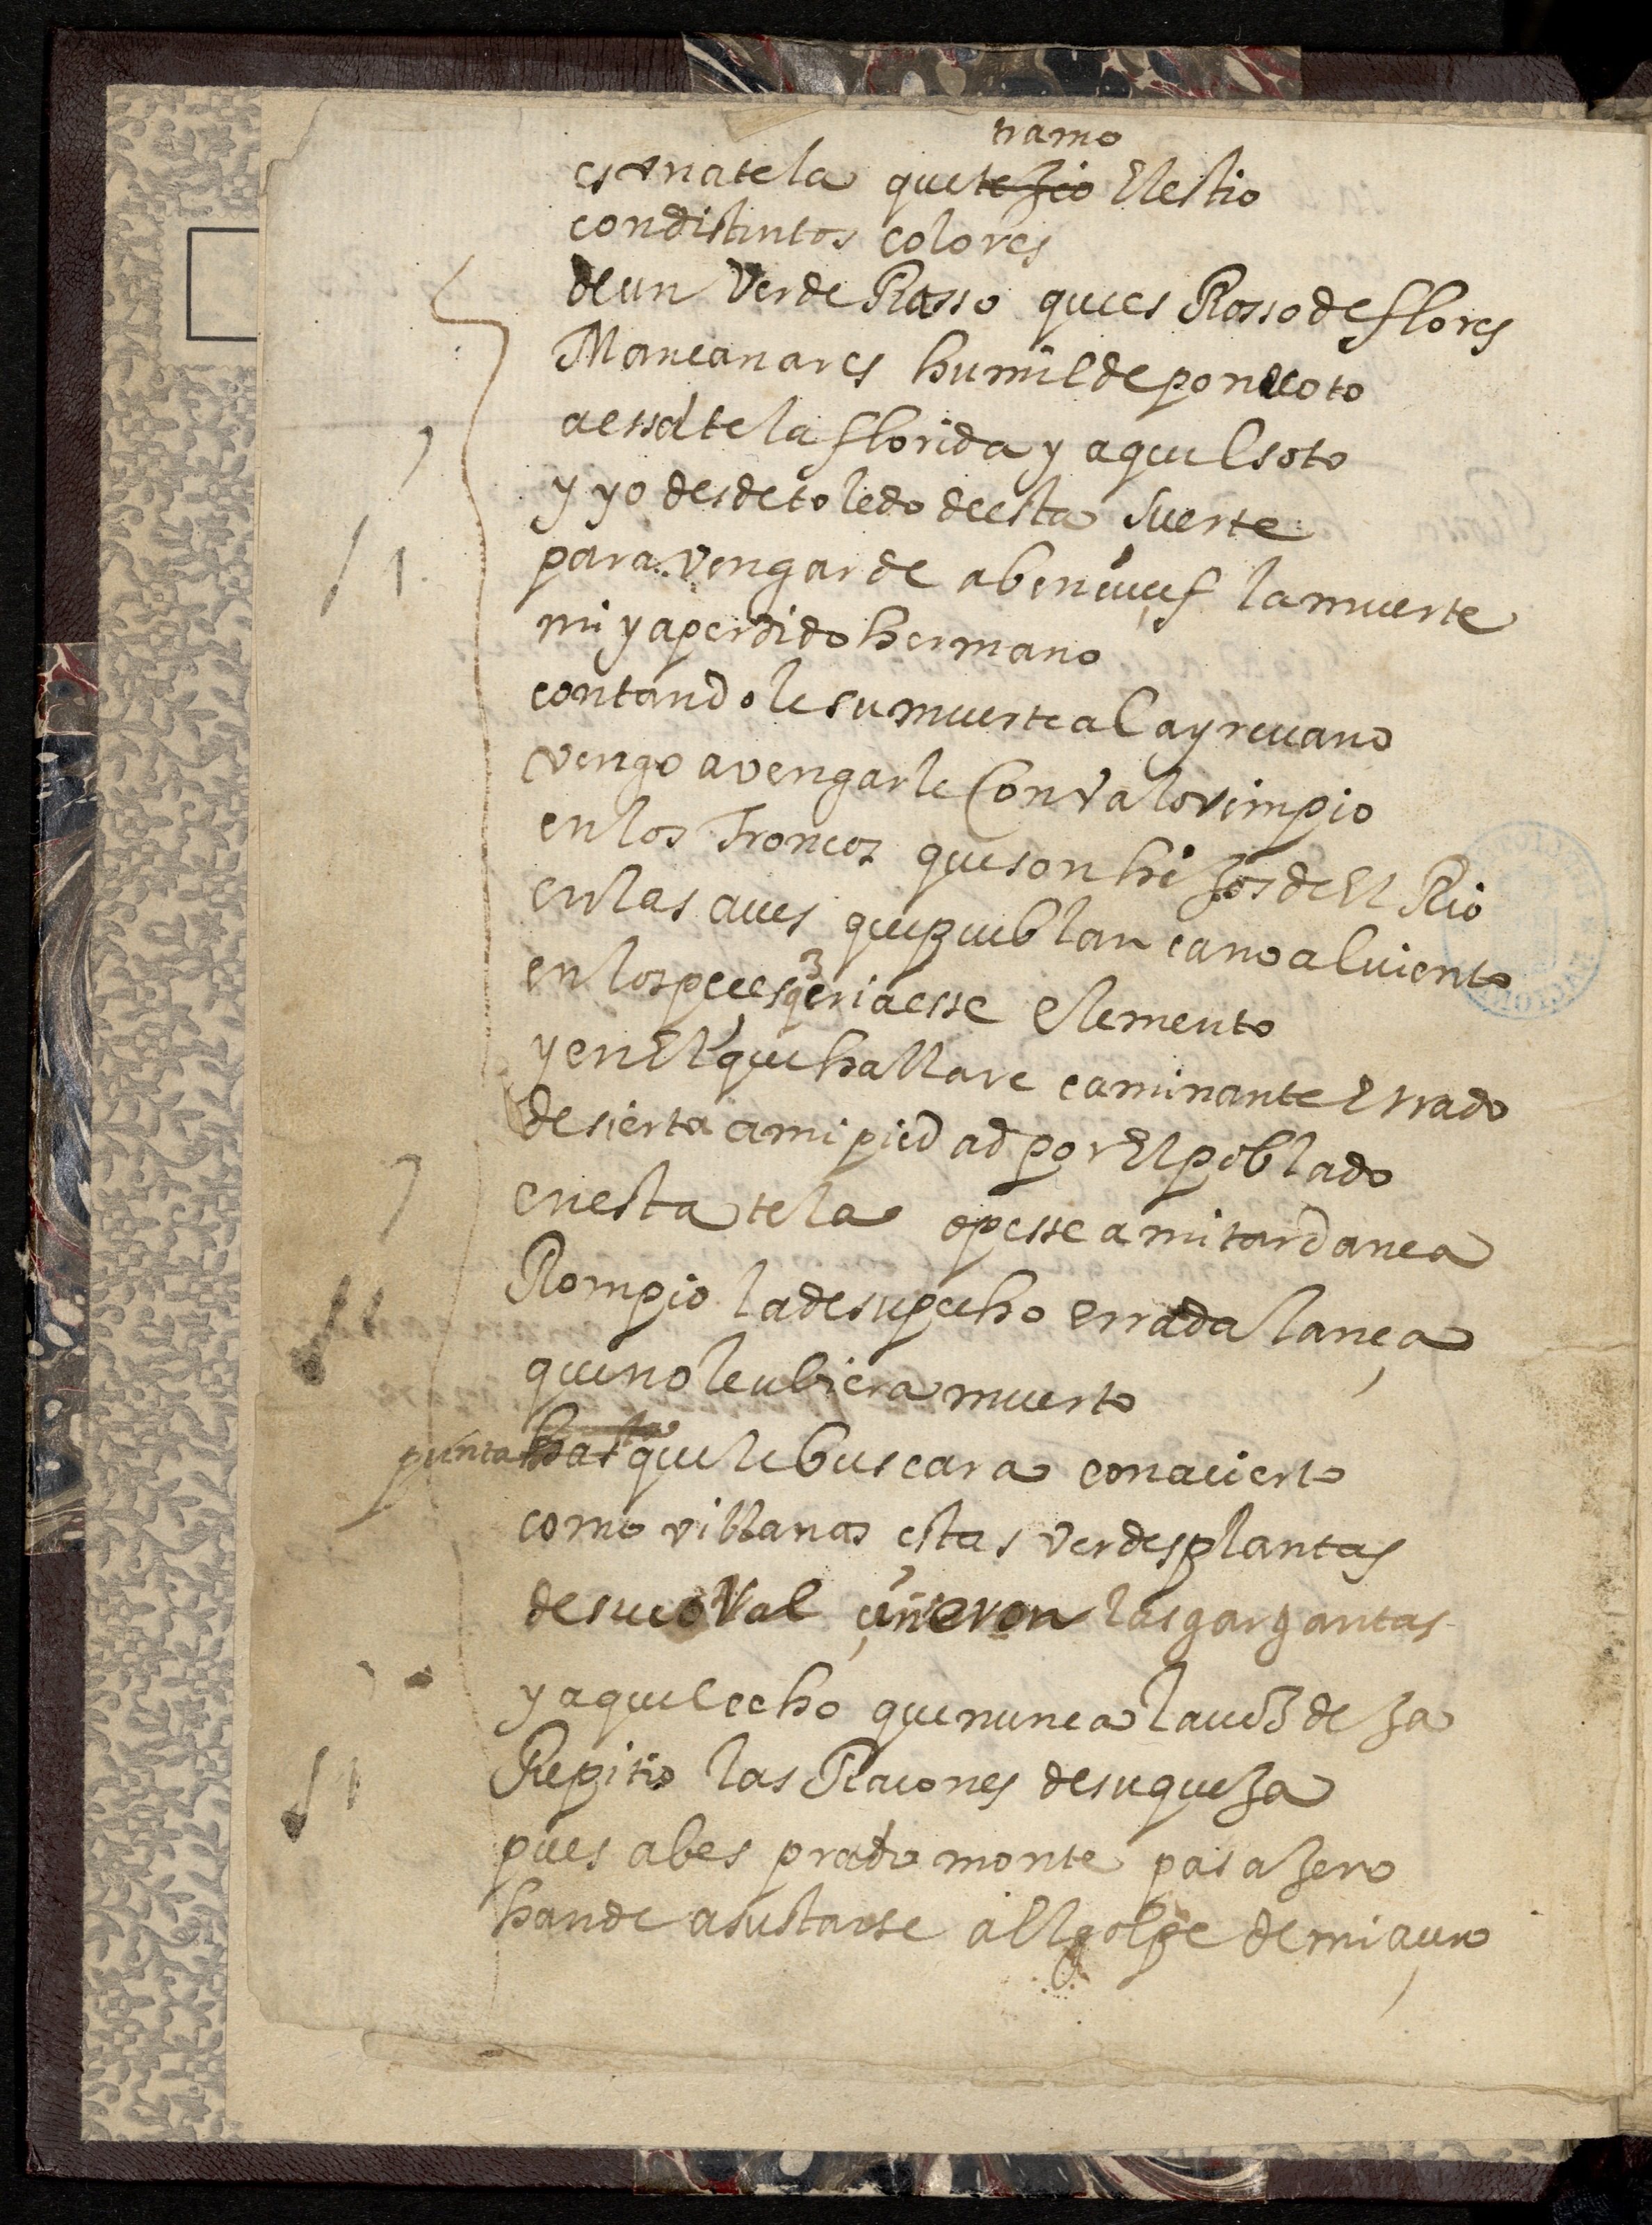 tramo
es una tela que texio El estio
con distintos colores
de un Verde Rasso que es Rasso de flores
Mancanares humilde pone coto
a essa tela florida y aquel soto
y yo desde toledo de esta suerte
para vengar de abenuçef la muerte
mi ya perdido hermano
contandole su muerte al ayre uano
vengo a vengarle Con Valor impio
en los Troncos que son hijos de El Rio
en las aues que pueblan cano al uiento
en los peces q cria esse elemento
y en El que hallare caminante Errado
desierta a mi piedad por El poblado
en esta tela o pesse a mi tardanca
Rompio la de su pecho errada lança
que no le ubiera muerto
punta hasta que le buscara con acierto
como villanas estas verdes plantas
de su coral çiñeron las gargantas
y aquel echo que nunca la uoz deja
Repitio las Racones de su queja
pues abes prado monte pasajero
han de asustarse a El golpe de mi açero